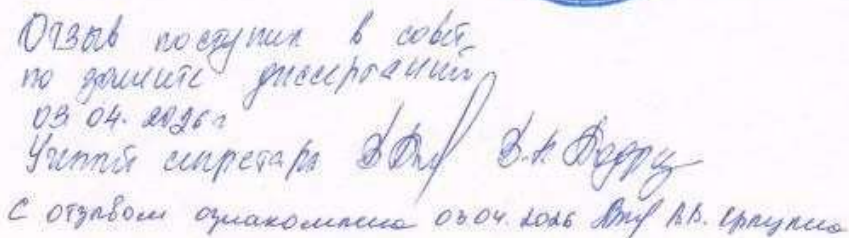 Отзыв поступил в совет
по защите диссертаций
03.04.2026 г
Учёный секретарь
С отзывом ознакомлена 03.04.2026